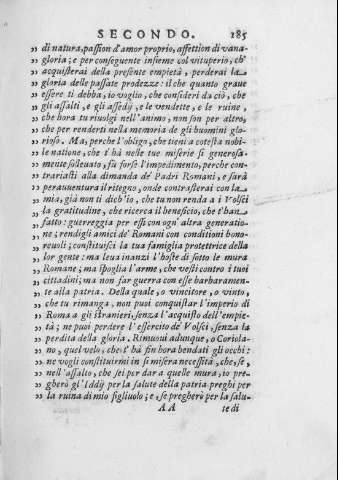 SECONDO. 185
„ di natura, passion d'amor proprio, affettion di vana-
„ gloria; e per conseguente insieme col vituperio, ch'
„ acquisterai della presente empietà, perderai la
„ gloria delle passate prodezze: il che quanto graue
„ essere ti debba, io voglio, che consideri da ciò, che
„ gli assalti, e gli assedij, e le vendette, e le ruine,
„ che hora tu riuolgi nell'animo, non son per altro,
„ che per renderti nella memoria de gli huomini glo-
„ rioso. Ma, perche l'obligo, che tieni a cotesta nobi-
„ le natione, che t'hà nelle tue miserie sì generosa-
„ mente solleuato, fù forse l'impedimento, perche con-
„ trariasti alla dimanda de' Padri Romani, e sarà
„ perauuentura il ritegno, onde contrasterai con la
„ mia, già non ti dich'io, che tu non renda a i Volsci
„ la gratitudine, che ricerca il beneficio, che t'han
„ fatto: guerreggia per essi con ogn'altra generatio-
„ ne; rendigli amici de' Romani con conditioni hono-
„ reuoli; constituisci la tua famiglia protettrice della
„ lor gente: ma leua inanzi l'hoste di sotto le mura
„ Romane; ma spoglia l'arme, che vesti contro i tuoi
„ cittadini; ma non far guerra con esse barbaramen-
„ te alla patria. Della quale, o vincitore, o vinto,
„ che tu rimanga, non puoi conquistar l'imperio di
„ Roma a gli stranieri, senza l'acquisto dell'empie-
„ tà; ne puoi perdere l'essercito de' Volsci, senza la
„ perdita della gloria. Rimuoui adunque, o Coriola-
„ no, quel velo, che t'hà sin hora bendati gli occhi:
„ ne vogli constituirmi in sì misera necessità, che, se,
„ nell'assalto, che sei per dar a quelle mura, io pre-
„ gherò gl'Iddij per la salute della patria preghi per
„ la ruina di mio figliuolo; e, se pregherò per la salu-
AA te di